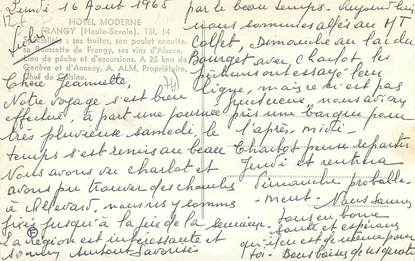 Lundi 16 Août 1965
HOTEL MODERNE
FRANGY (Haute-Savoie). Tél. 14
ses truites, son poulet cocotte
sa Roussette de Frangy, ses vins d'Alsace.
de pêche et d'excursions. A 25 kms de
Genève et d'Annecy. A. ALM, Propriétaire,
Chef de Cuisine.
Chère Jeannette
Notre voyage s'est bien
effectué, à part une journée
très pluvieuse samedi, le
temps s'est remis au beau
Nous avons vu Charlot et
avons pu trouver des chambres
à Allevard, nous y sommes
fixés jusqu'à la fin de la semaine.
La région est intéressante et
par le beau temps. Aujourd'hui
nous sommes allés au Mt
Collet, Dimanche au lac du
Bourget avec Charlot les
pêcheurs ont essayé leur
ligne, mais ce n'est pas
nous avions
pris une barque pour
l'après-midi.
Charlot pense repartir
Jeudi et rentrera
dimanche probable-
ment. Nous sommes
tous en bonne
santé et espérons
qu'il en est de même pour
toi. Bons baisers de nous quatre